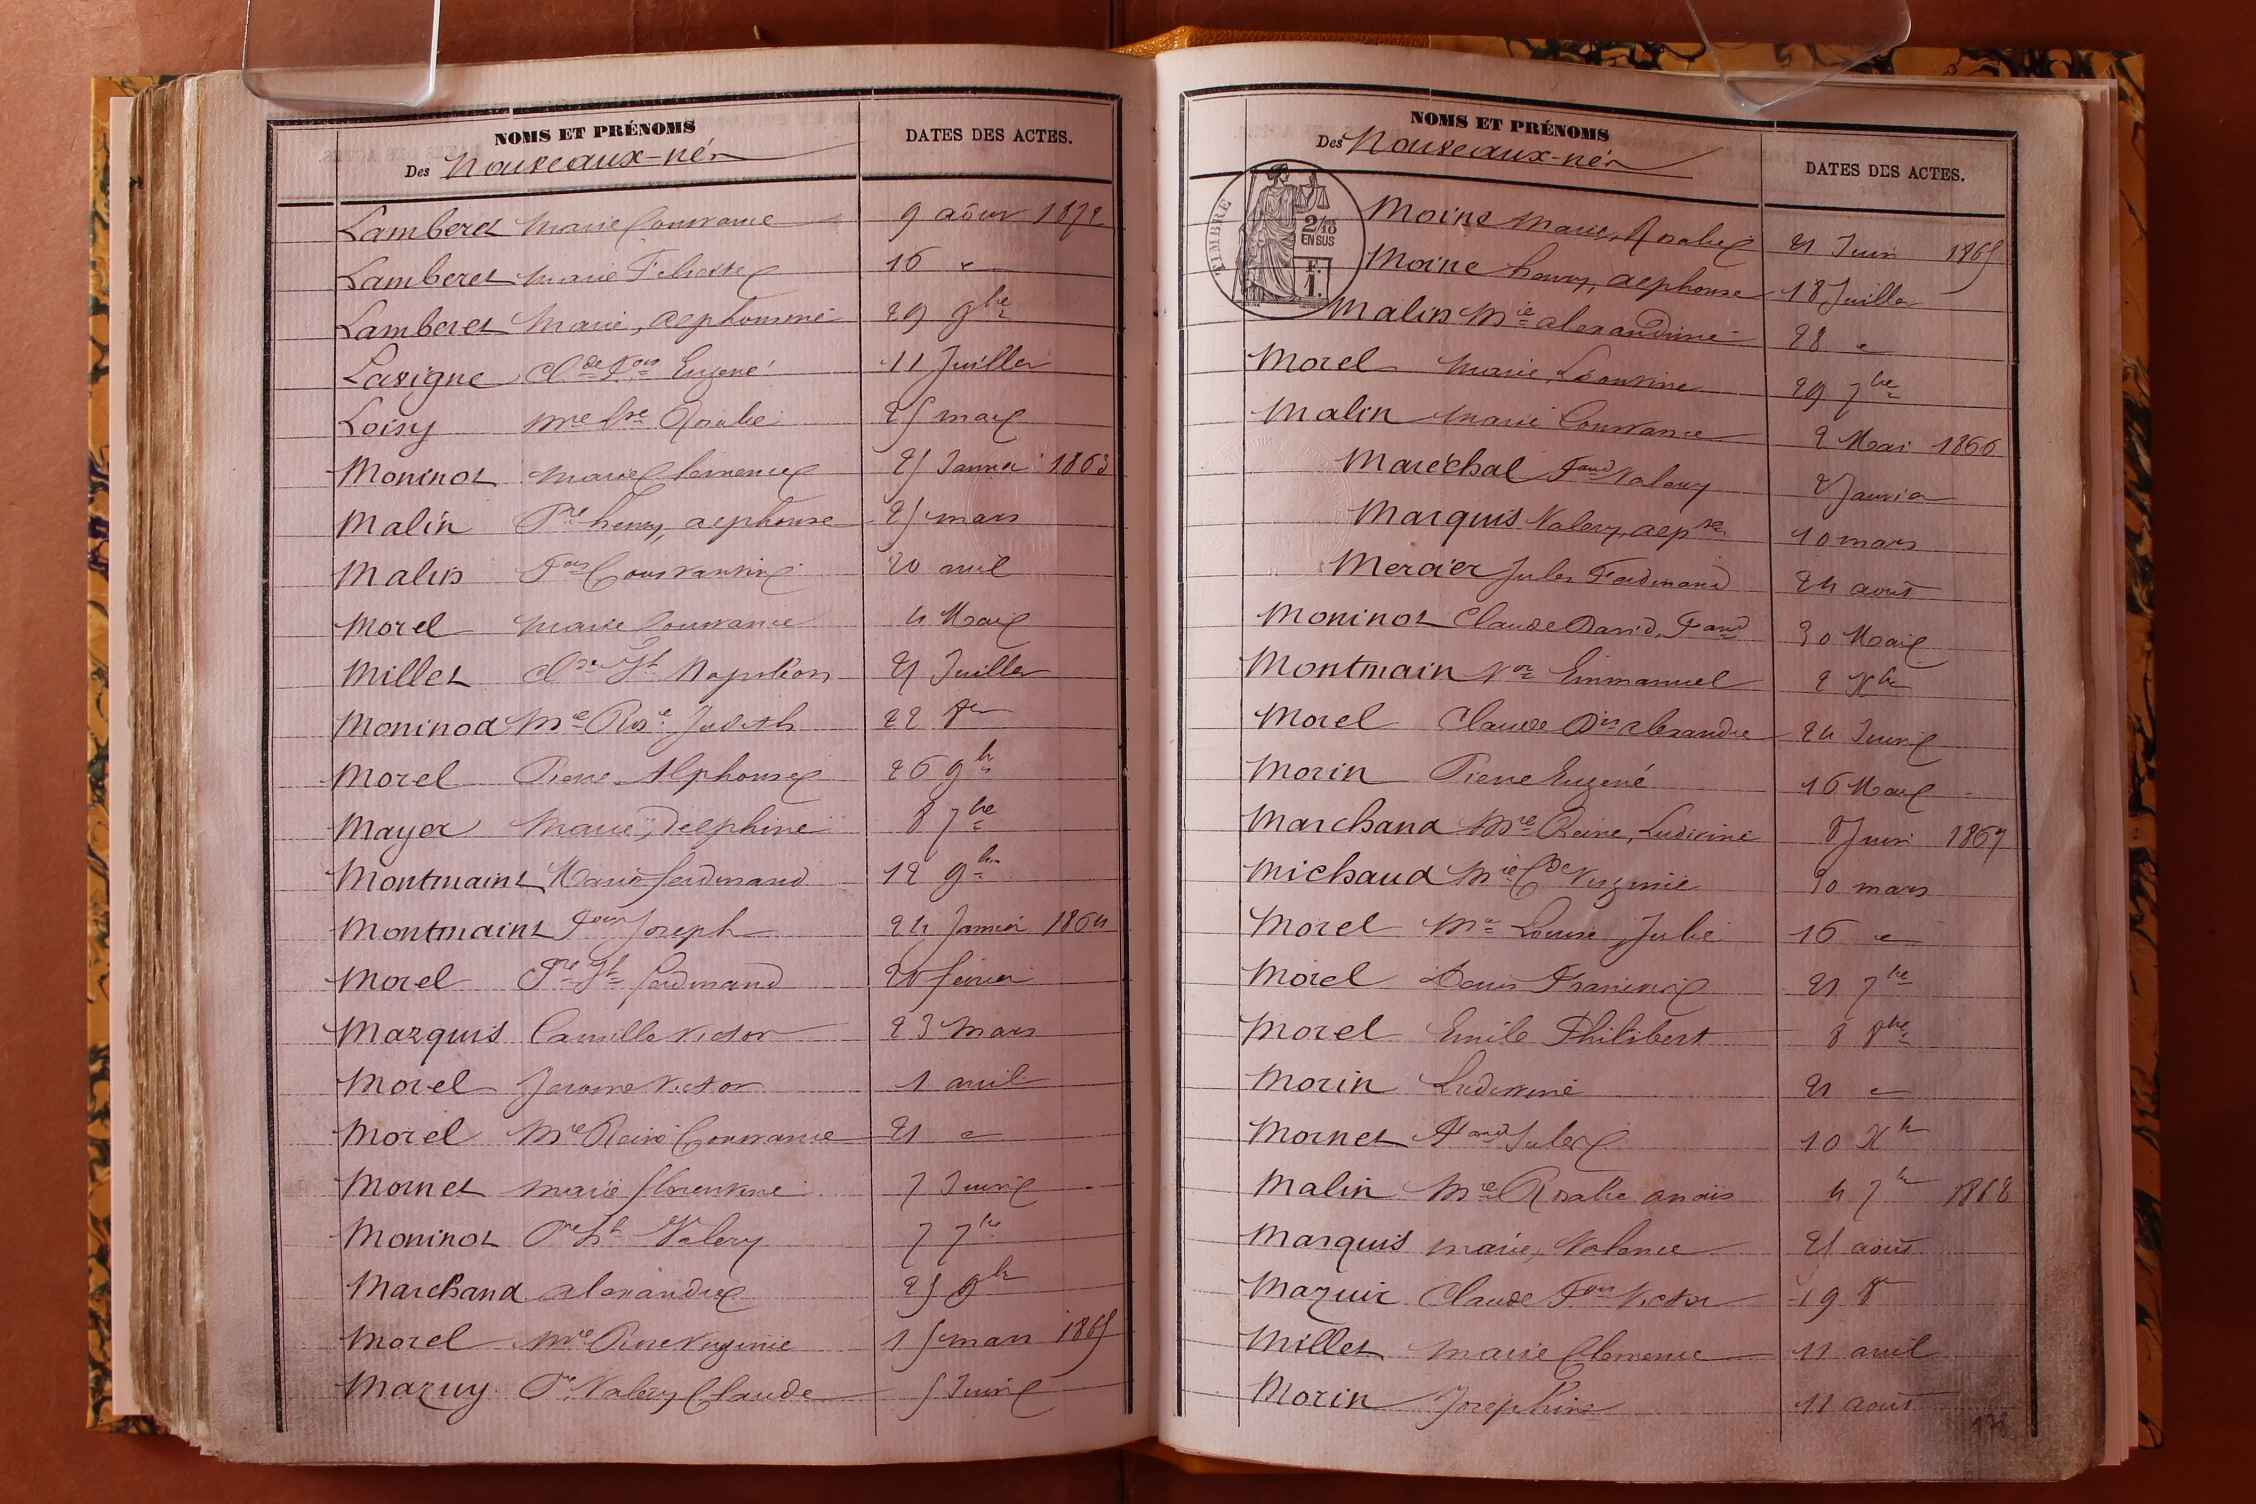 NOMS ET PRÉNOMS
DATES DES ACTES.
Des Nouveaux-nés
Lamberet Marie Constance 9 août 1872
Lamberet Marie 16 "
Lamberet Marie, alphonsine 29 9bre
Lavigne Cl.de F.ois Eugène 11 Juillet
Loisy Mie Rosalie 25 mai
Moninot Marie Clemence 25 Janvier 1863
Malin Pre henry, alphonse 25 mars
Malin F.ois Constantin 20 avril
Morel Marie Constance 4 Mai
Millet Jh Napoléon 21 Juillet
Moninod Mie Rose Judith 22 8re
Morel Pierre Alphonse 26 9bre
Mayer Marie, Delphine 8 7bre
Montmaint Marie ferdinand 12 9bre
Montmaint F.ois Joseph 24 Janvier 1864
Morel Pre Jh ferdinand février
Marquis Camille Victor 23 Mars
Morel Jerome Victor 1 avril
Morel Mie Reine Constance 21 "
Mornet Marie florentine 7 Juin
Moninot Valery 7 7bre
Marchand alexandre 25 9bre
Morel Mie Virginie 15 mars 1865
Mazuy Pre Valery Claude 5 Juin
NOMS ET PRÉNOMS
DATES DES ACTES.
Des Nouveaux-nés
TIMBRE
2/10
EN SUS
F.
1.
Moine Marie, Rosalie 21 Juin 1865
Moine henry, alphonse 18 Juillet
Malin Mie alexandrine 28 "
Morel Marie Léontine 29 7bre
Malin Marie Constance 2 Mai 1866
Maréchal F.and Valery 2 Janvier
Marquis Valery, alpse 10 mars
Mercier Jules Ferdinand 24 août
Moninot Claude David, F.and 30 Mai
Montmain V.or Emmanuel 2 Xbre
Morel Claude alexandre 24 Juin
Morin Pierre Eugène 16 Mai
Marchand Mie Reine, Ludivine 8 Juin 1867
Michaud Mie Virginie 30 mars
Morel Mie Louise, Julie 16 "
Morel Louis 21 7bre
Morel Emile Philibert 8 8bre
Morin Ludivine 21 "
Mornet F.and Jules 10 Xbre
Malin Mie Rosalie anaïs 4 7bre 1868
Marquis Marie, Valence 21 août
Mazuir Claude F.ois Victor 19 8re
Millet Marie Clemence 11 avril
Morin Josephine 11 août
138